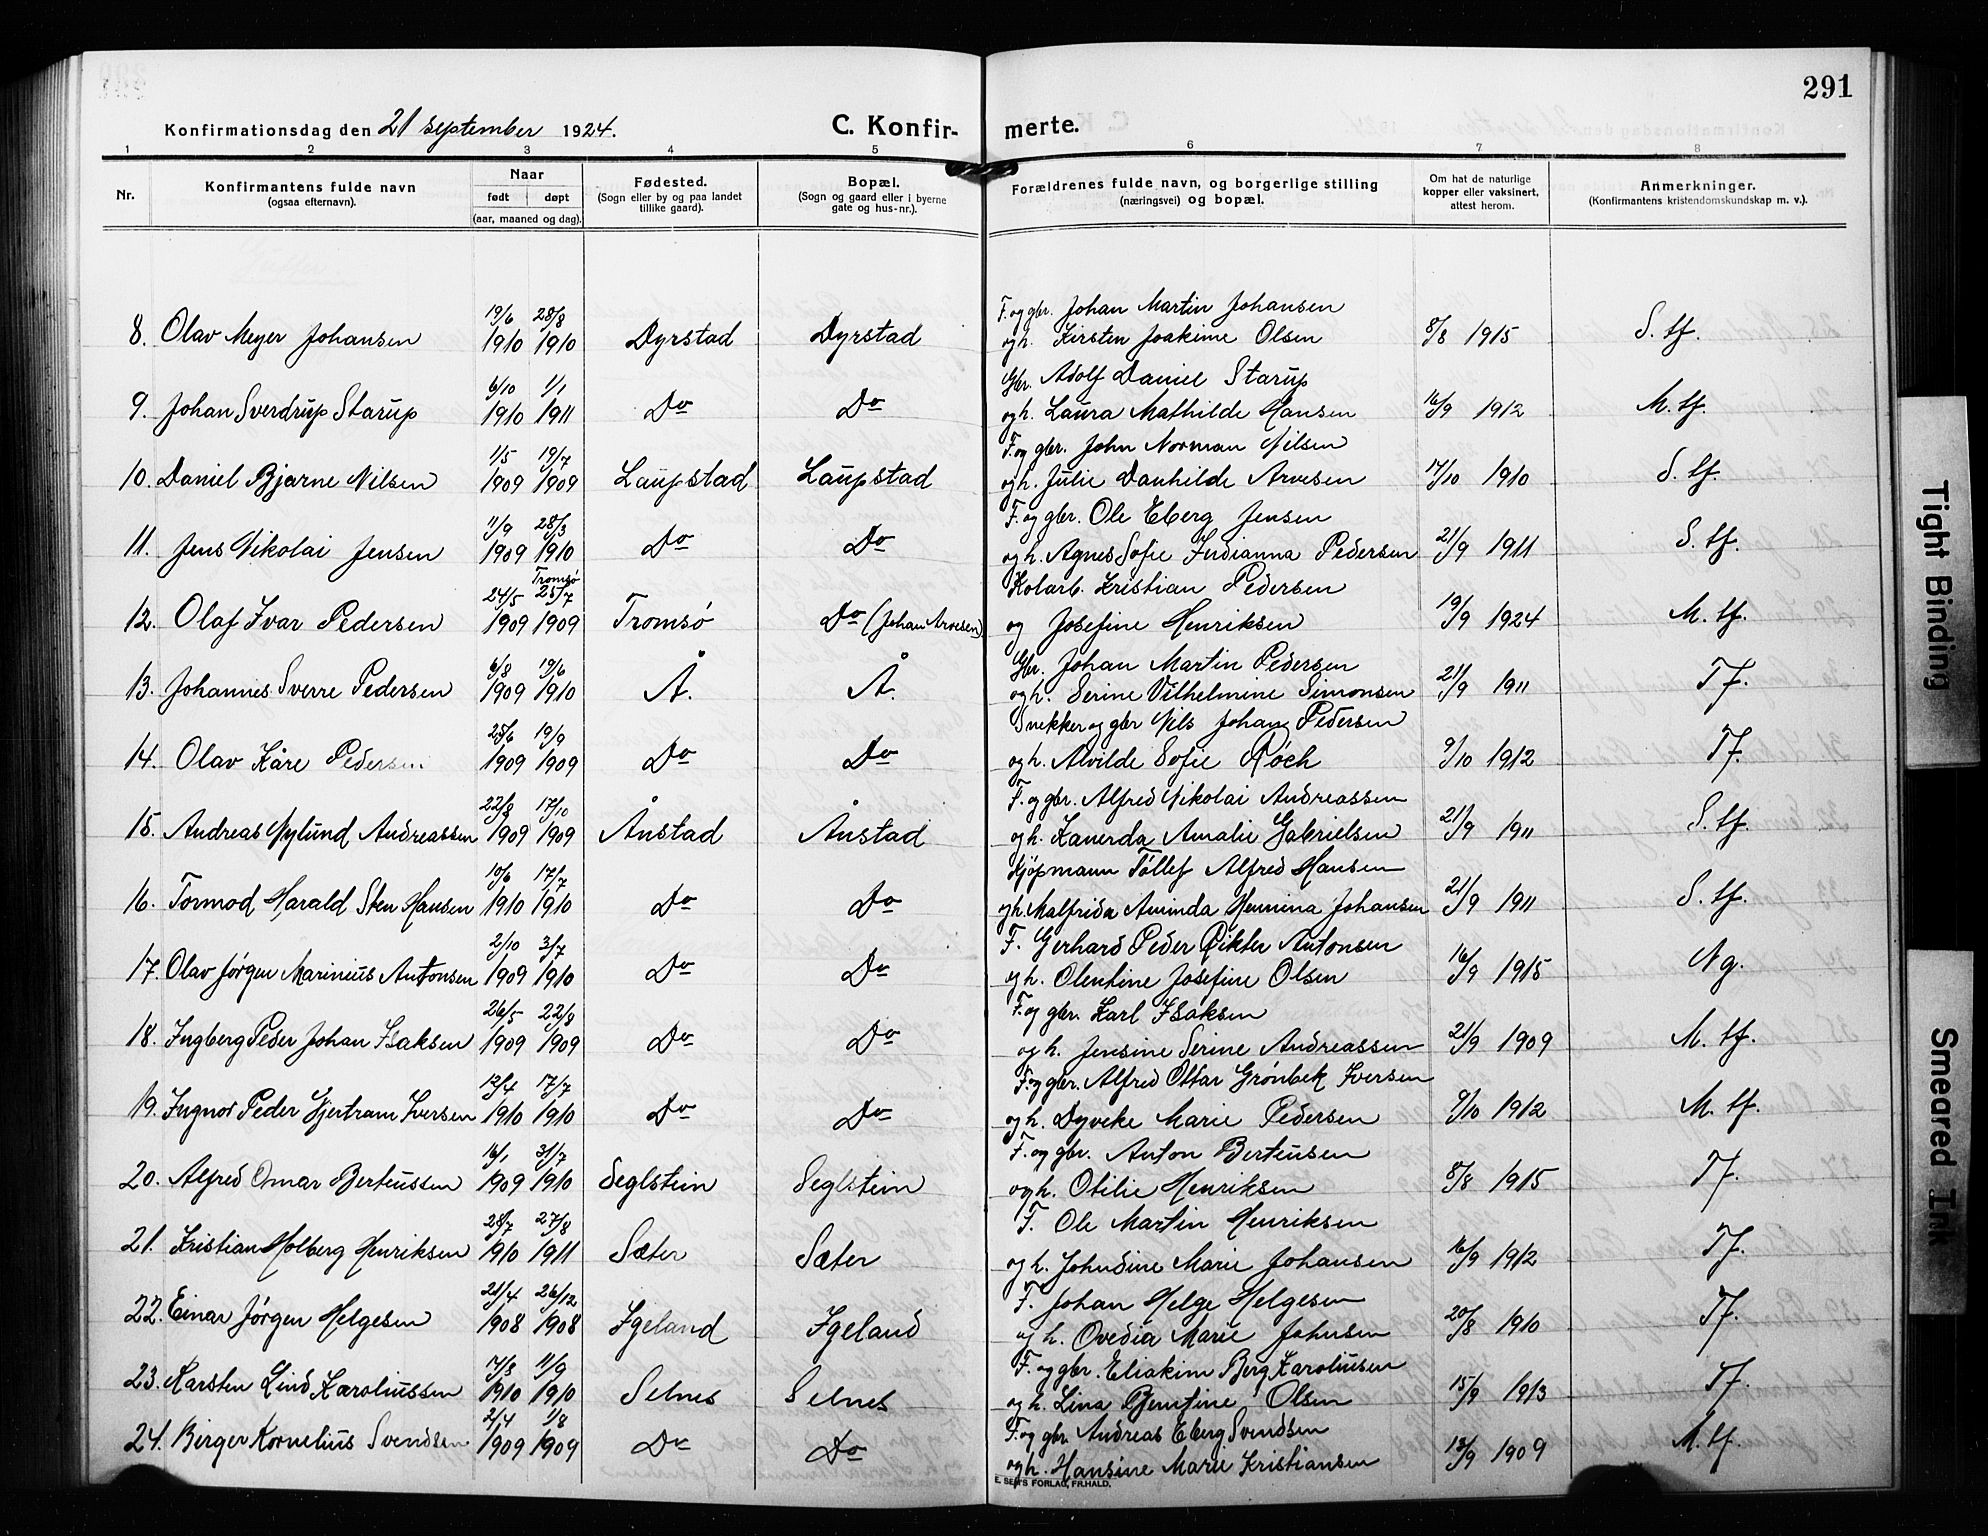 291
Konfirmationsdag den 21 september 1924.
C. Konfir- merte.
1 2 3 4 5 6 7 8
Nr.
Konfirmantens fulde navn
(ogsaa efternavn).
Naar
født døpt
(aar, maaned og dag).
Fødested.
(Sogn eller by og paa landet
tillike gaard).
Bopæl.
(Sogn og gaard eller i byerne
gate og hus-nr.).
Forældrenes fulde navn, og borgerlige stilling
(næringsvei) og bopæl.
Om hat de naturlige
kopper eller vaksinert,
attest herom.
Anmerkninger.
(Konfirmantens kristendomskundskap m. v.).
19/6 28/8 F. og gbr. Johan Martin Johansen
8. Olav Meyer Johansen 1910 1910 Dyrstad Dyrstad og h. Kirsten Joakime Olsen 8/8 1915 S. tf.
6/10 1/1 Gbr. Adolf Daniel Starup
9. Johan Sverdrup Starup 1910 1911 Do Do og h. Laura Mathilde Hansen 16/9 1912 M. tf.
1/5 19/7 F. og gbr. John Norman Nilsen
10. Daniel Bjarne Nilsen 1909 1909 Laupstad Laupstad og h. Julie Danhilde Arvesen 17/10 1910 S. tf.
11/9 28/3 F. og gbr. Ole Eberg Jensen
11. Jens Nikolai Jensen 1909 1910 Do Do og h. Agnes Sofie Indianna Pedersen 21/9 1911 S. tf.
Tromsø
24/5 25/7 Kolarb. Kristian Pedersen
12. Olaf Ivar Pedersen 1909 1909 Tromsø Do (Johan Arvesen) og Josefine Henriksen 19/9 1924 M. tf.
6/8 19/6 Gbr. Johan Martin Pedersen
13. Johannes Sverre Pedersen 1909 1910 Å. Å. og h. Serine Vilhelmine Simonsen 21/9 1911 Tf.
25/6 19/9 Snekker og gbr Nils Johan Pedersen
14. Olav Kåre Pedersen 1909 1909 Do Do og h. Alvilde Sofie Røch 9/10 1912 Tf.
22/8 17/10 F. og gbr. Alfred Nikolai Andreassen
15. Andreas Nylund Andreassen 1909 1909 Ånstad Ånstad og h. Kanerda Amalie Gabrielsen 21/9 1911 S. tf.
10/6 17/7 Kjøpmann Tøllef Alfred Hansen
16. Tormod Harald Sten Hansen 1910 1910 Do Do og h. Malfrida Aminda Hennina Johansen 21/9 1911 S. tf.
2/10 3/7 F. Gerhard Peder Rikter Antonsen
17. Olav Jørgen Marinius Antonsen 1909 1910 Do Do og h. Olentine Josefine Olsen 16/9 1915 Ng.
26/5 22/8 F. og gbr. Karl Isaksen
18. Ingberg Peder Johan Isaksen 1909 1909 Do Do og h. Jensine Serine Andreassen 21/9 1909 M. tf.
12/4 17/7 F. og gbr. Alfred Ottar Grønbek Iversen
19. Ingnor Peder Hjertram Iversen 1910 1910 Do Do og h. Dyveke Marie Pedersen 9/10 1912 M. tf.
16/1 31/7 F. og gbr. Anton Berteusen
20. Alfred Omar Berteussen 1909 1910 Seglstein Seglstein og h. Otilie Henriksen 8/8 1915 Tf.
28/7 27/8 F. Ole Martin Henriksen
21. Kristian Holberg Henriksen 1910 1911 Sæter Sæter og h. Johndine Marie Johansen 16/9 1912 Tf.
21/4 26/12 F. Johan Helge Helgesen
22. Einar Jørgen Helgesen 1908 1908 Igeland Igeland og h. Ovedia Marie Johnsen 20/8 1910 Tf.
17/3 11/9 F. og gbr. Eliakim Berg Karoliusen
23. Karsten Lind Karoliussen 1910 1910 Selnes Selnes og h. Lina Bjentine Olsen 15/9 1913 Tf.
2/4 1/8 F. og gbr Andreas Eberg Svendsen
24. Birger Kornelius Svendsen 1909 1909 Do Do og h. Hansine Marie Kristiansen 13/9 1909 M. tf.
E. SEM'S FORLAG, FR.HALD.
Tight Binding
Smeared Ink